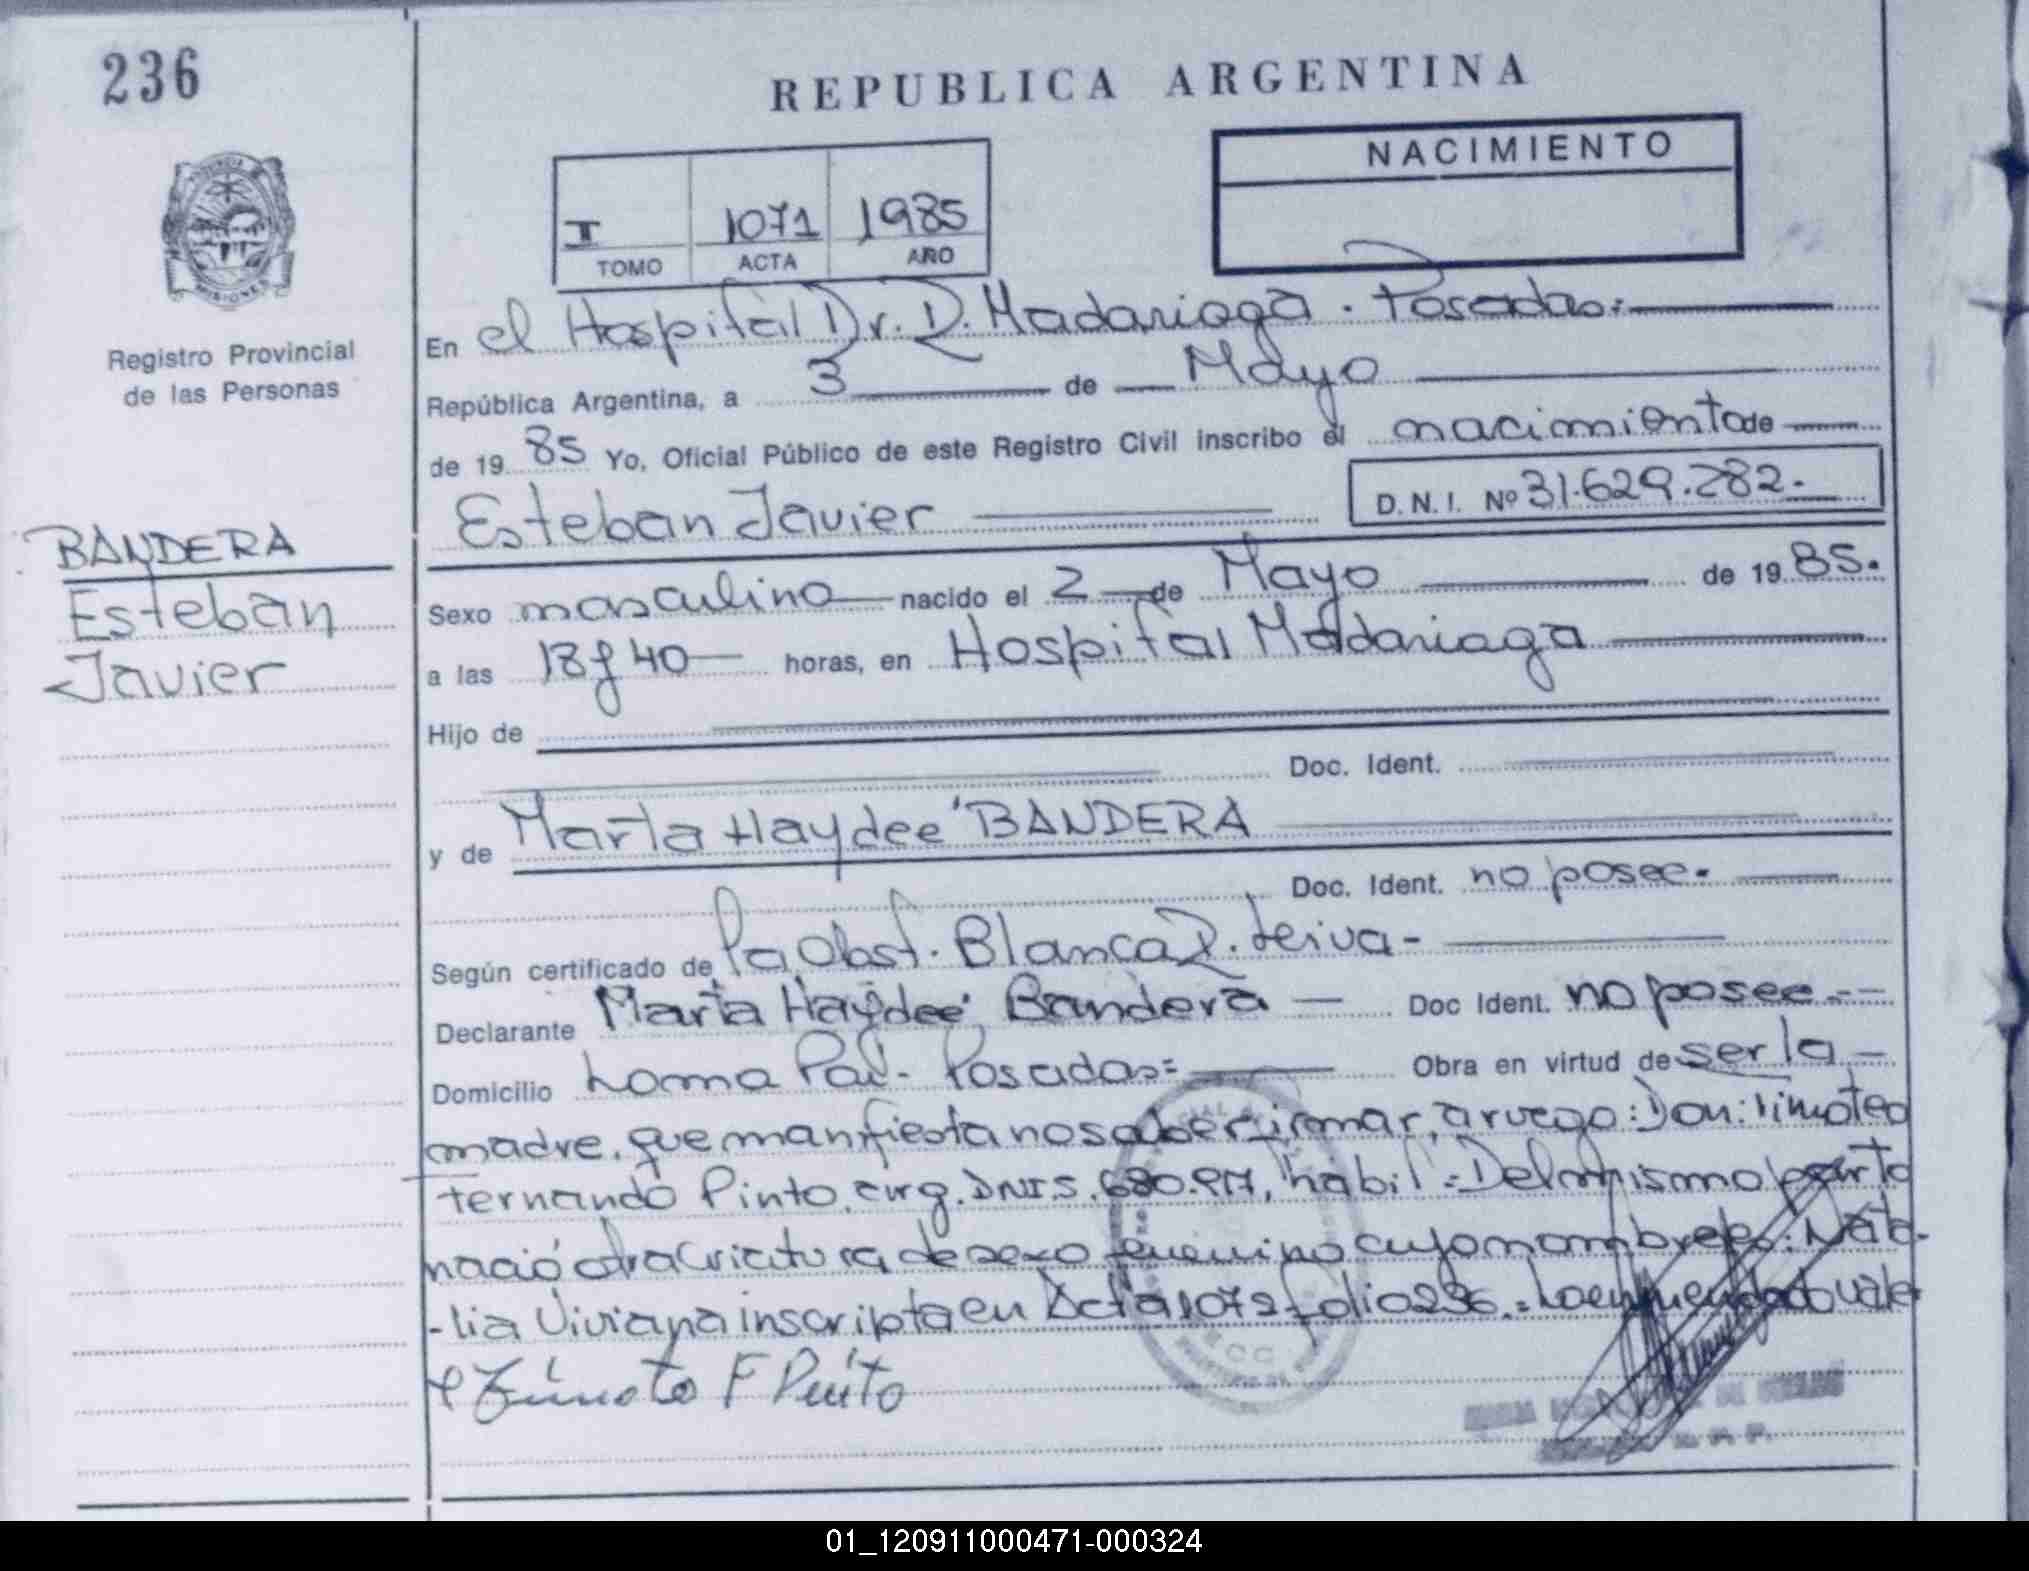 236
REPUBLICA ARGENTINA
NACIMIENTO
I 1071 1985
TOMO ACTA AÑO
PROVINCIA
MISIONES
Registro Provincial
de las Personas
En el Hospital Dr. R. Madariaga. Posadas.
República Argentina, a 3 de Mayo
de 1985 Yo, Oficial Público de este Registro Civil inscribo el nacimiento de
Esteban Javier D.N.I. Nº 31.629.282.
BANDERA
Esteban
Javier
Sexo masculino nacido el 2 de Mayo de 1985.
a las 18 y 40 horas, en Hospital Madariaga
Hijo de
Doc. Ident.
y de Marta Haydee BANDERA
Doc. Ident. no posee.
Según certificado de la Obst. Blanca R. Leiva-
Declarante Marta Haydee Bandera Doc Ident. no posee
Domicilio Loma Poí. Posadas= Obra en virtud de ser la
madre, que manifiesta no saber firmar, a ruego: Don: Timoteo
Fernando Pinto, arg. DNI 5.680. habil.= Del mismo parto
nació otra criatura de sexo femenino cuyo nombre es: Nata-
-lia Viviana inscripta en Acta 1072 folio 236.= Lo enmendado vale
Timoteo F Pinto
01_120911000471-000324